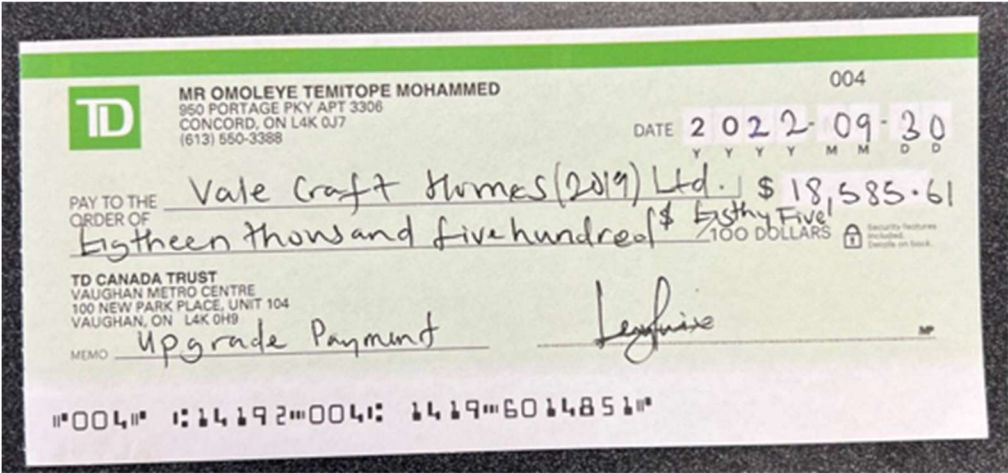 004
TD
MR OMOLEYE TEMITOPE MOHAMMED
950 PORTAGE PKY APT 3306
CONCORD, ON L4K 0J7
(613) 550-3388
DATE 2022-09-30
Y Y Y Y M M D D
PAY TO THE ORDER OF Vale Craft Homes (2019) Ltd. $ 18,585.61
Eigtheen thousand five hundred $ Eigthy Five /100 DOLLARS
Security features included. Details on back.
TD CANADA TRUST
VAUGHAN METRO CENTRE
100 NEW PARK PLACE, UNIT 104
VAUGHAN, ON L4K 0H9
MEMO Upgrade Payment
MP
⑈004⑈ ⑆14192⑉004⑆ 1419⑉6014851⑈